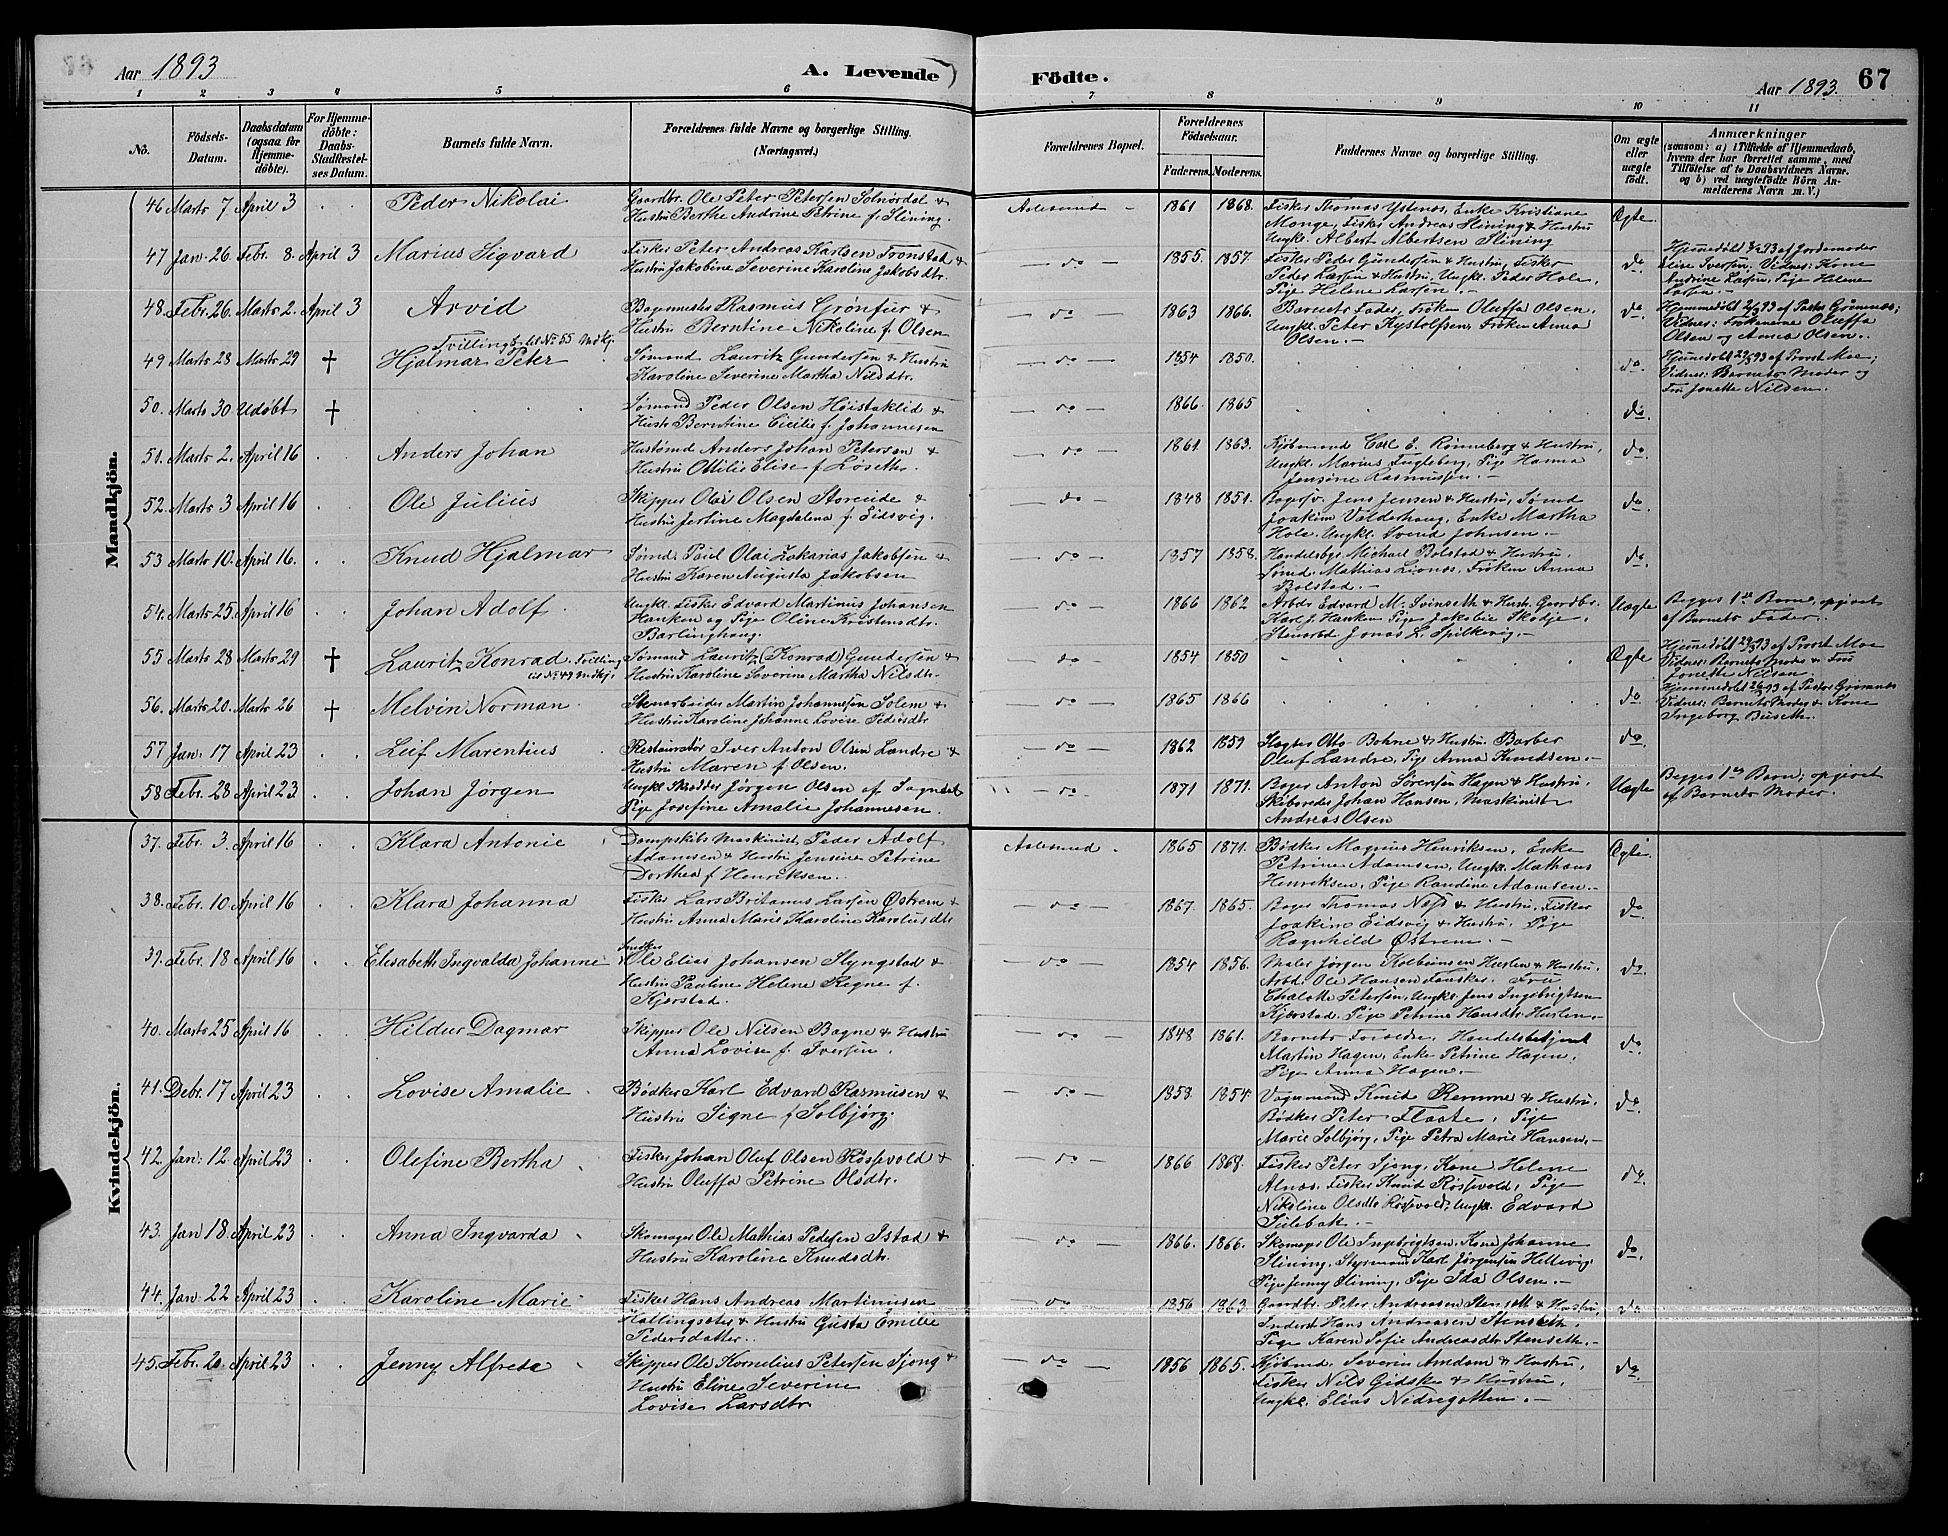 Aar 1893
A. Levende
Födte.
Aar 1893.
67
1 2 3 4 5 6 7 8 9 10 11
No.
Födsels-Datum.
Daabsdatum (ogsaa for Hjemmedöbte).
For Hjemmedöbte: Daabs-Stadfæstelses Datum.
Barnets fulde Navn.
Forældrenes fulde Navne og borgerlige Stilling.
(Næringsvei.)
Forældrenes Bopæl.
Forældrenes Födselsaar.
Faderens. Moderens.
Faddernes Navne og borgerlige Stilling.
Om ægte eller uægte födt.
Anmærkninger
(saasom: a) i Tilfælde af Hjemmedaab, hvem der har forrettet samme, med Tilföielse af to Daabsvidners Navne, og b) ved uægtefödte Börn Anmelderens Navn m. V.)
Mandkjön.
46 Marts 7 April 3 Peder Nikolai Gaardbr. Ole Peter Petersen Solnørdal &
Hustru Berthe Andrine Petrine f. Slining. Aalesund 1861 1868. Fisker Thomas Ystenes, Enke Kristiane
Monge, Fisker Andreas Slining & Hustru
Ungk. Albert Albertsen Slining Ægte.
47 Jan. 26 Febr. 8. April 3 Marius Sigvard Fisker Peter Andreas Karlsen Tronstad &
Hustru Jakobine Severine Karoline Jakobsdtr. do 1855. 1857. Fisker Peder Gundersen & Hustru, Fisker
Peder Larsen & Hustru, Ungk. Peder Hole,
Pige Helene Larsen. do Hjemmedøbt 8/2 93 af Jordemoder
Elise Iversen, Vidner: Kone
Andrine Larsen, Pige Helene
Larsen.
48. Febr. 26. Marts 2. April 3 Arvid Bagmester Rasmus Grønfur &
Hustru Berntine Nikoline f. Olsen do 1863 1866. Barnets Fader, Frøken Oluffa Olsen,
Ungk. Peter Rystolfsen, Frøken Anna
Olsen. do Hjemmedøbt 2/3 93 af Pastor Grønnes;
Vidner: Frøknerne Oluffa
Olsen og Anna Olsen.
49 Marts 28 Marts 29 † Tvilling til No 55 Mdkj.
Hjalmar Peter Sømand Lauritz Gundersen & Hustru
Karoline Severine Martha Nilsdtr. do 1854 1850. do. Hjemmedøbt 29/3 93 af Provst Moe;
Vidner: Barnets Moder og
Fru Jonette Nilsen.
50. Marts 30 Udøbt † Sømand Peder Olsen Høistaklid &
Hustru Berntine Cicilie f. Johannesen do 1866. 1865 do
51. Marts 2. April 16 Anders Johan Husmand Anders Johan Petersen &
Hustru Ottilie Elise f. Løseth. do 1861 1863. Kjøbmand Carl E. Rønneberg & Hustru,
Ungk. Marius Fugleberg, Pige Hanna
Jensine Rasmusen. do.
52. Marts 3 April 16 Ole Julius Skipper Olai Olsen Storeide &
Hustru Jertine Magdalena f. Eidsvig. do 1848 1851. Bagersv. Jens Jensen & Hustru, Sømd
Joakim Valderhaug, Enke Martha
Hole, Ungk. Svend Johnsen. do
53 Marts 10. April 16. Knud Hjalmar Sømd. Paul Olai Zakarias Jakobsen &
Hustru Karen Augusta Jakobsen do 1857 1858. Handelsbgt. Michael Bolstad & Hustru,
Sømd. Mathias Lionæs, Frøken Anna
Bolstad. do
54. Marts 25. April 16 Johan Adolf Ungk. Fisker Edvard Martinus Johansen
Hanken og Pige Oline Kristensdtr.
Barlinghaug. do 1866 1862 Arbdr. Edvard M. Svinseth & Hustr. Gaardbr.
Karl J. Hanken Pige Jakobie Skotje,
Stenarbd Jonas L. Spilkevig. Uægte Begges 1ste Barn, opgivet
af Barnets Fader.
55 Marts 28 Marts 29 † Lauritz Konrad. Tvilling
til No 49 Mdkj. Sømand Lauritz (Konrad) Gundersen &
Hustru Karoline Severine Martha Nilsdtr. do 1854 1850 Ægte Hjemmedøbt 29/3 93 af Provst Moe
Vidner: Barnets Moder & Fru
Jonette Nilsen
56. Marts 20. Marts 26 † Melvin Norman Stenarbeider Martin Johannesen Solem &
Hustru Karoline Johanne Lovise Pedersdtr do 1865 1866 do Hjemmedøbt 26/3 93 af Pastor Grønnes
Vidner: Barnets Moder & Kone
Ingeborg Buseth.
57 Jan. 17 April 23 Leif Marentius Restauratør Iver Anton Olsen Landre &
Hustru Maren f. Olsen. do 1862 1859 Slagter Otto Bohne & Hustru. Barber
Oluf Landre, Pige Anna Knudsen. do.
58 Febr. 28 April 23 Johan Jørgen Ungk Skrædder Jørgen Olsen af Sogndal
Pige Josefine Amalie Johannesen. do. 1871 1871. Bager Anton Sørensen Hagen & Hustru.
Skibsreder Johan Hansen, Maskinist
Andreas Olsen Uægte Begges 1ste Barn; opgivet
af Barnets Moder.
Kvindekjön.
37. Febr. 3. April 16 Klara Antonie Dampskibs Maskinist Peder Adolf
Adamsen & Hustru Jensine Petrine
Dorthea f Henriksen. Aalesund 1865 1871. Bødker Magnus Henriksen, Enke
Petrine Adamsen, Ungk. Mathæus
Henriksen, Pige Randine Adamsen. Ægte.
38. Febr. 10 April 16 Klara Johanna Fisker Lars Britanus Larsen Østrem &
Hustru Anna Marie Karoline Karolusdtr. do 1867. 1865. Bager Thomas Næss & Hustru, Fisker
Joakim Eidsvig & Hustru, Pige
Ragnhild Østrem. do
39. Febr. 18 April 16 Elisabeth Ingvalda Johanne Snedker
Ole Elias Johansen Slyngstad &
Hustru Pauline Helene Regne f.
Kjerstad. do 1854 1856. Maler Jørgen Kolbeinsen Huslen & Hustru,
Arbd. Ole Hansen Fauske. Frue
Chalotte Petersen, Ungk. Jens Ingebrigtsen
Kjerstad, Pige Petrine Hansdtr. Huslen. do.
40. Marts 25 April 16 Hildur Dagmar Skipper Ole Nilsen Bogne & Hustru
Anna Lovise f. Iversen. do 1848 1861. Barnets Forældre, Handelsbetjent
Martin Hagen, Enke Petrine Hagen,
Pige Anna Hagen. do.
41. Debr. 17 April 23 Lovise Amalie Bødker Karl Edvard Rasmusen &
Hustru Signe f Solbjørg. do 1858. 1854. Vognmand Knud Remme & Hustru,
Bødker Peter Flaate, Pige
Marie Solbjørg, Pige Petra Marie Hansen. do.
42. Jan. 12. April 23 Olefine Bertha Fisker Johan Oluf Olsen Røssevold &
Hustru Oluffa Petrine Olsdtr. do 1866 1868. Fisker Peter Sjong, Kone Helene
Alnæs, Fisker Knud Røssevold, Pige
Nikoline Olsdtr Røssevold, Ungk. Edvard
Sulebak. do.
43. Jan 18. April 23 Anna Ingvarda Skomager Ole Mathias Pedersen Istad &
Hustru Karoline Knudsdtr. do 1866. 1866. Skomager Ole Ingebrigtsen, Kone Johanne
Slining, Styrmand Karl Jørgensen Hellevig,
Pige Jenny Slining, Pige Ida Olsen. do.
44. Jan. 22 April 23 Karoline Marie Fisker Hans Andreas Martinusen
Hallingsæter & Hustru Gusta Emilie
Pedersdatter. do 1856 1863 Gaardbr. Peter Andreasen Stenseth & Hustru,
Inderst Hans Andreasen Stenseth,
Pige Karen Sofie Andreasdtr Stenseth. do
45. Febr. 20. April 23 Jenny Alfrede Skipper Ole Kornelius Petersen Sjong &
Hustru Eline Severine
Lovise Larsdtr. do 1856 1865. Kjøbmd. Severin Amdam & Hustru,
Fisker Nils Gidske & Hustru,
Ungk. Elias Nedregotten. do